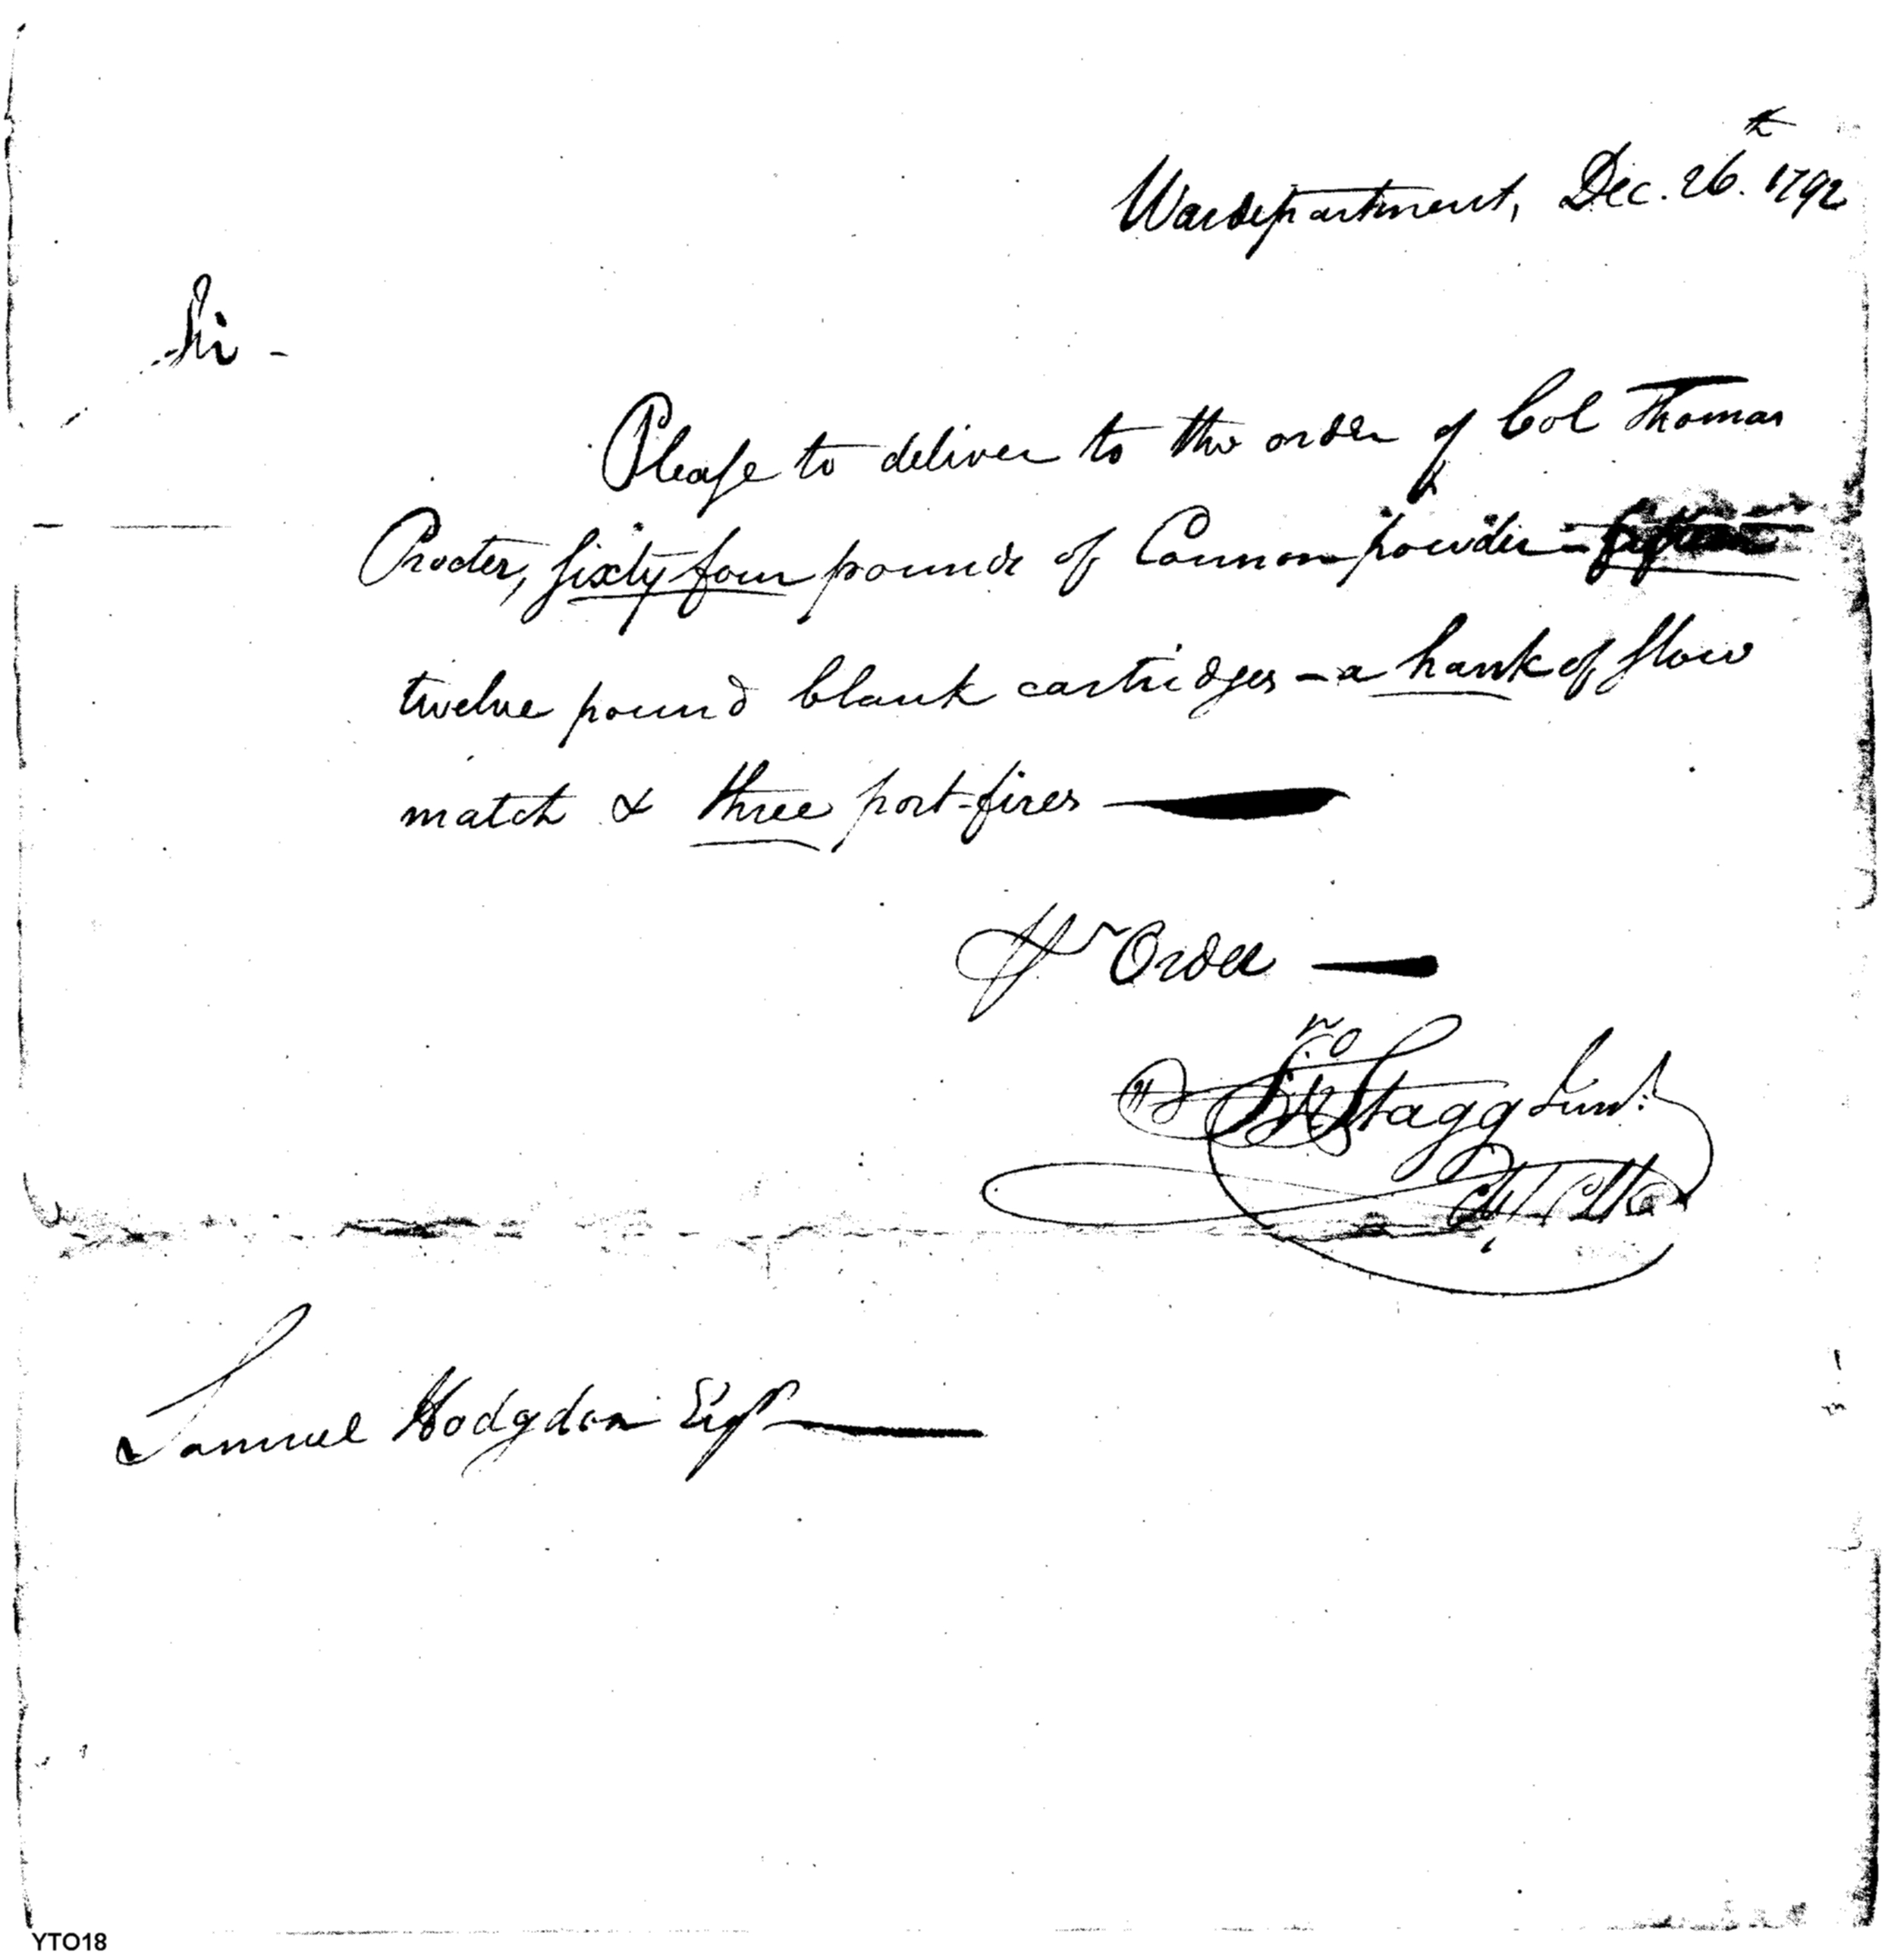 War department, Dec. 26.th 1792
Sir -
Please to deliver to the order of Col Thomas
Procter, sixty four pounds of Cannon powder - fifteen
twelve pound blank cartridges - a hank of slow
match & three port-fires
Pr Order
Jno Stagg Junr.
Samuel Hodgdon Esqr
YTO18